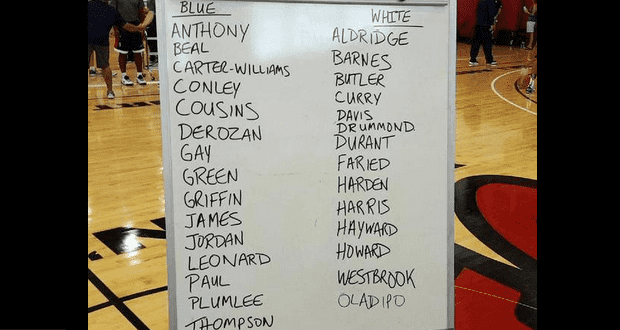 BLUE
ANTHONY
BEAL
CARTER-WILLIAMS
CONLEY
COUSINS
DEROZAN
GAY
GREEN
GRIFFIN
JAMES
JORDAN
LEONARD
PAUL
PLUMLEE
THOMPSON
WHITE
ALDRIDGE
BARNES
BUTLER
CURRY
DAVIS
DRUMMOND
DURANT
FARIED
HARDEN
HARRIS
HAYWARD
HOWARD
WESTBROOK
OLADIPO